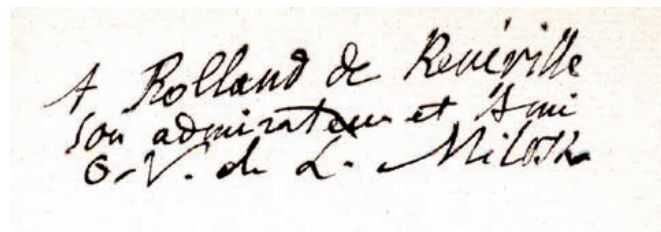 A Rolland de Renéville
son admirateur et Ami
O.-V. de L. Milosz